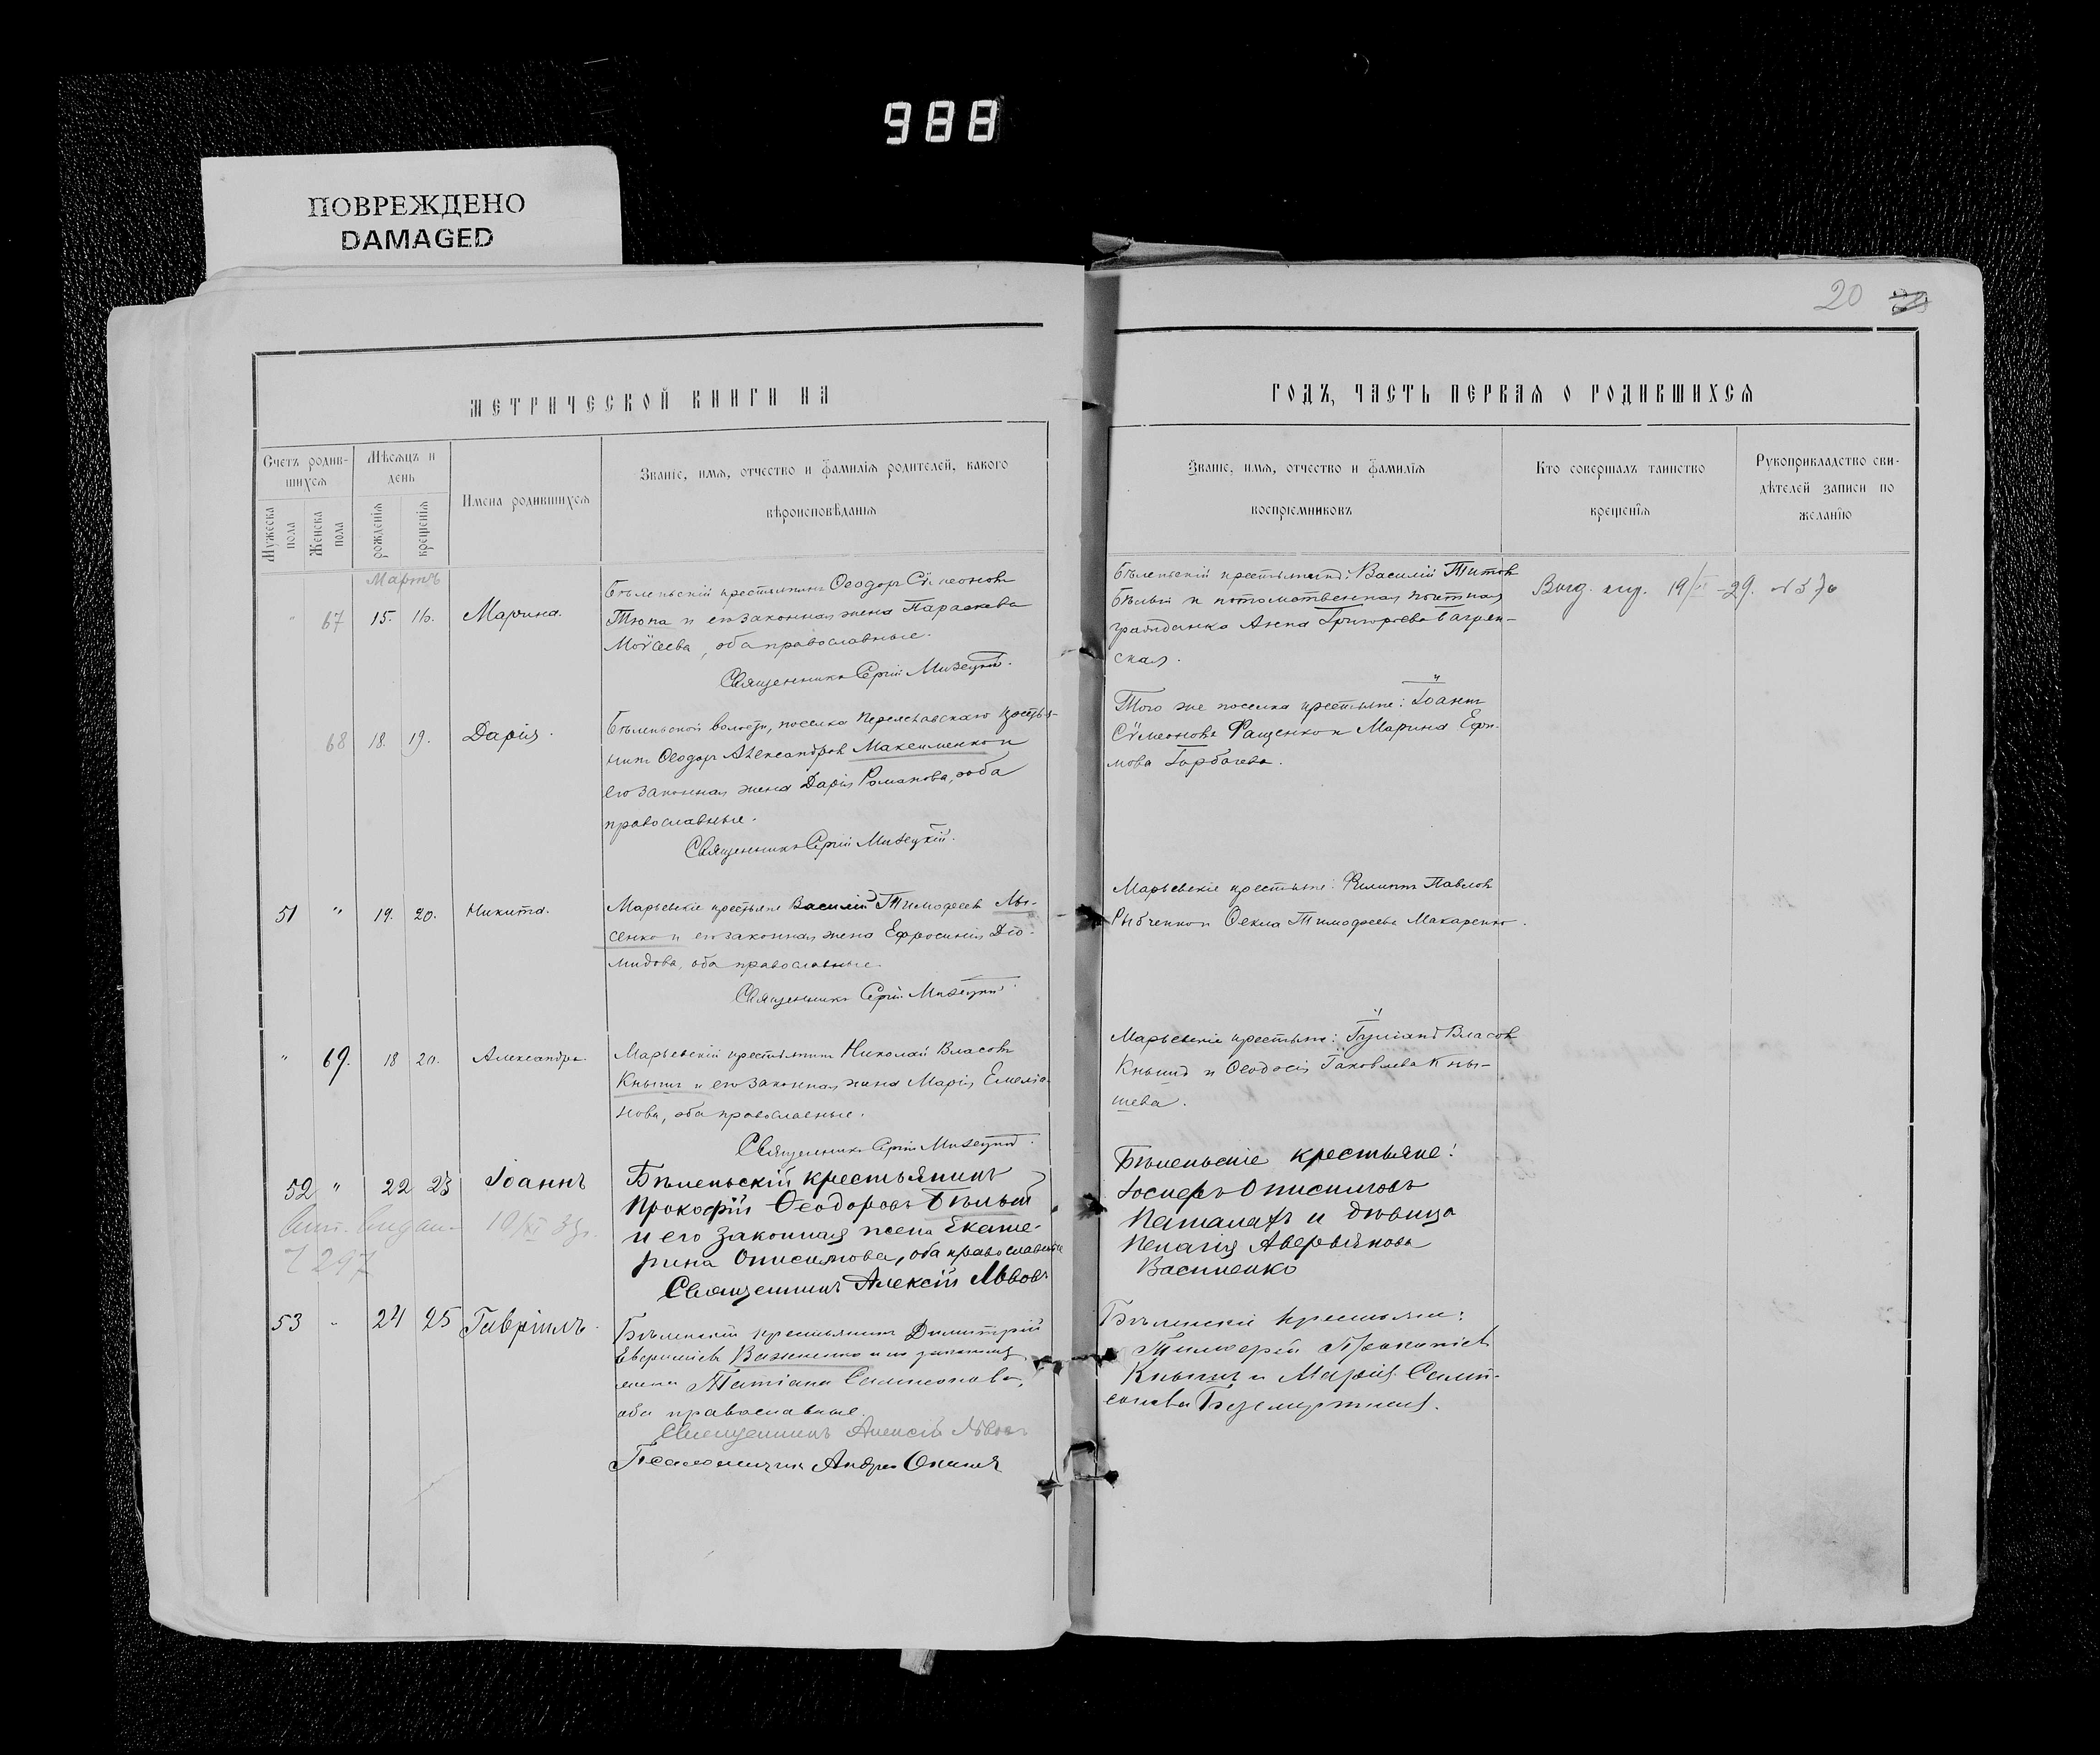 988
ПОВРЕЖДЕНО
DAMAGED
20
МЕТРИЧЕСКОЙ КНИГИ НА
ГОДЪ, ЧАСТЬ ПЕРВАЯ О РОДИВШИХСЯ
Счетъ родив-
шихся
Мѣсяцъ и
день
Мужеска
пола
Женска
пола
рожденія
крещенія
Имена родившихся
Званіе, имя, отчество и фамилія родителей, какого
вѣроисповѣданія
Званіе, имя, отчество и фамилія
воспрiемниковъ
Кто совершалъ таинство
крещенія
Рукоприкладство сви-
дѣтелей записи по
желанію
Мартъ
" 67 15. 16. Марина.
Бѣленьскій крестьянинъ Ѳеодоръ Сѵмеоновъ
Тюпа и его законная жена Параскева
Моѵсеева, оба православные.
Священникъ Сергій Мизецкій.
Бѣленьскій крестьянинъ: Василій Титовъ
Бѣлый и потомственная почтная
гражданка Анна Григорьева
ская.
Выд. 19/ -29. №
68 18. 19. Дарія.
Бѣленьской волости, поселка Переяславскаго крестья-
нинъ Ѳеодоръ Александровъ Максименко и
его законная жена Дарія Романова, оба
православные.
Священникъ Сергій Мизецкій.
Того же поселка крестьяне: Іоаннъ
Сѵмеоновъ Фащенко и Марина Ефи-
мова Горбачева.
51 " 19. 20. Никита.
Марьевскіе крестьяне Василій Тимофеевъ Лы-
сенко и его законная жена Ефросинія Діо-
мидова, оба православные.
Священникъ Сергій Мизецкій.
Марьевскіе крестьяне: Филиппъ Павловъ
Рыбченко и Ѳекла Тимофеева Макаренко.
" 69. 18 20. Александра.
Марьевскій крестьянинъ Николай Власовъ
Кнышъ и его законная жена Марія Емеліа-
нова, оба православные.
Священникъ Сергій Мизецкій.
Марьевскіе крестьяне: Іуліанъ Власовъ
Кнышъ и Ѳеодосія Іаковлева Кны-
шева.
52 " 22 23 Іоаннъ
Бѣленьскій крестьянинъ
Прокофій Ѳеодоровъ Бѣлый
и его законная жена Екате-
рина Онисимова, оба православные
Священникъ Алексій Львовъ
Бѣленьскіе крестьяне:
Іосифъ Онисимовъ
и дѣвица
Пелагія Аверьянова
Василенко
297
53 " 24 25 Гавріилъ.
Бѣленьскій крестьянинъ Димитрій
Важненко и его законная
жена Татіана Самсонова,
оба православные.
Священникъ Алексій Львовъ
Псаломщикъ Андрей
Бѣленьскіе крестьяне:
Тимофей
Кнышъ и Марія Самп-
сонова Безсмертная.